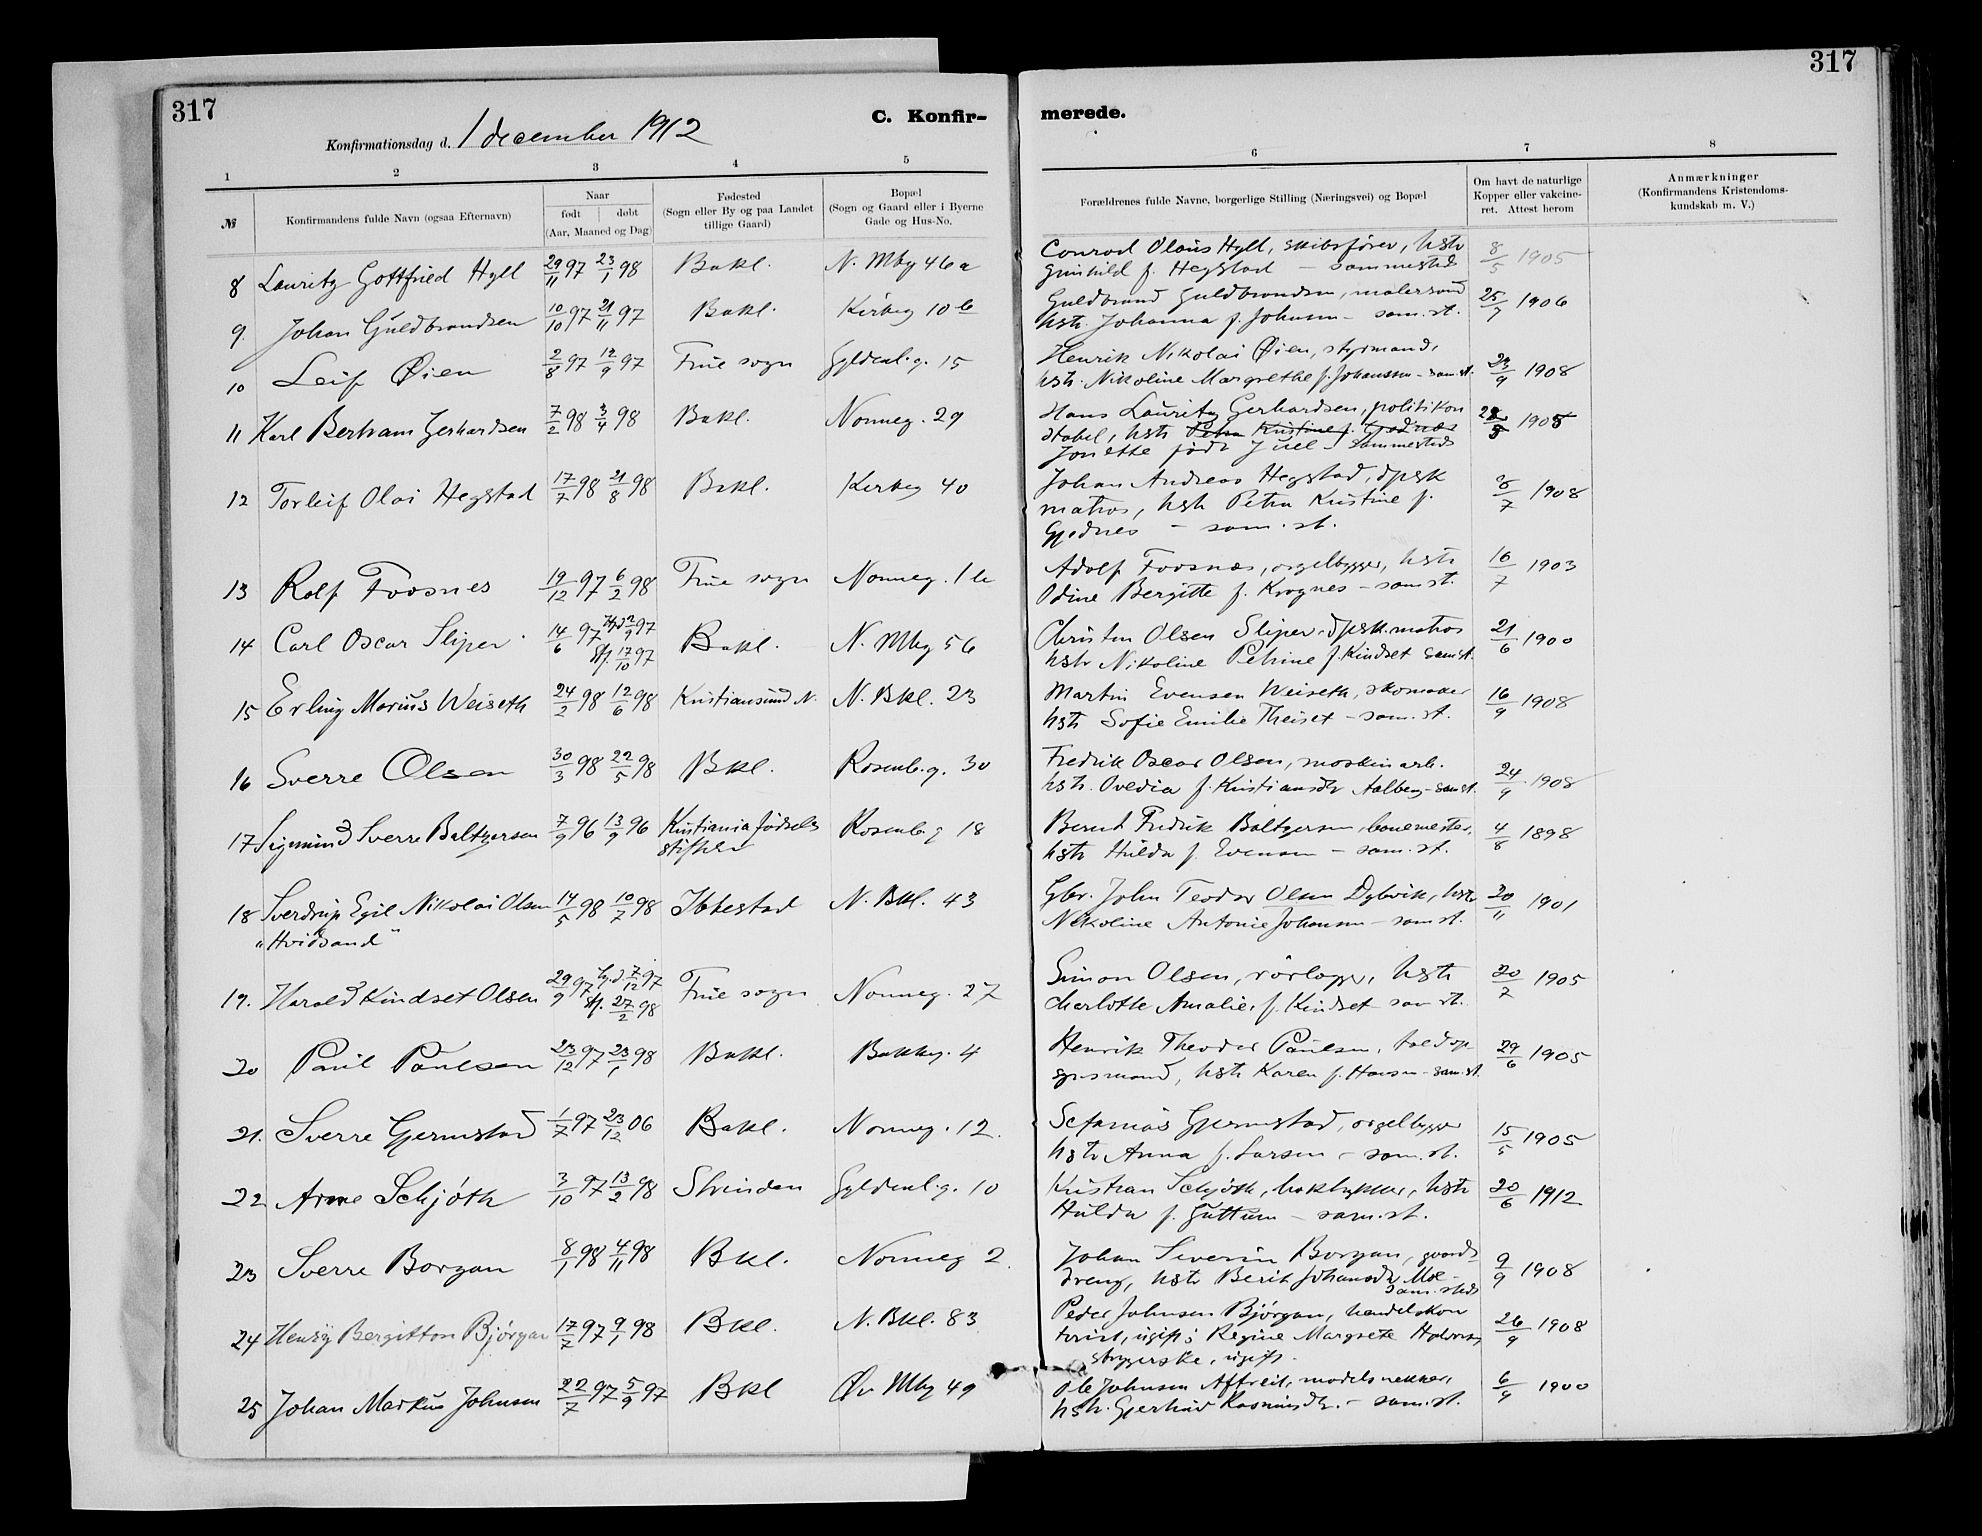 317
317
C. Konfir-
merede.
Konfirmationsdag d. 1 december 1912
1 2 3 4 5 6 7 8
№
Konfirmandens fulde Navn (ogsaa Efternavn)
Naar
født | døbt
(Aar, Maaned og Dag)
Fødested
(Sogn eller By og paa Landet
tillige Gaard)
Bopæl
(Sogn og Gaard eller i Byerne
Gade og Hus-No.
Forældrenes fulde Navne, borgerlige Stilling (Næringsvei) og Bopæl
Om havt de naturlige
Kopper eller vakcine-
ret. Attest herom
Anmærkninger
(Konfirmandens Kristendoms-
kundskab m. V.)
8 Lauritz Gottfried Hyll 29/11 97 23/1 98 Bakl. N. Mbg 46a Conrad Olaus Hyll, skibsfører, hstr
Gunhild f. Hegstad - sammesteds 8/5 1905
9. Johan Guldbrandsen 10/10 97 21/11 97 Bakl. Kirkeg 10 b Guldbrand Guldbrandsen, malersvend
hstr. Johanna f. Johnsen - sam.st. 25/7 1906
10 Leif Øien 2/8 97 12/9 97 Frue sogn Gyldenl.g. 15 Henrik Nikolai Øien, styrmand,
hstr. Nikoline Margrethe f. Johanssen - sam.st. 23/9 1908
11 Karl Bertram Gerhardsen 7/2 98 3/4 98 Bakl. Nonneg. 29 Hans Lauritz Gerhardsen, politikon
stabel, hstr Petra Kristine f. Gjednes
Jonette født Juel - sammesteds 1905
12 Torleif Olai Hegstad 17/7 98 21/8 98 Bakl. Kirkeg 40 Johan Andreas Hegstad, dpsk
matros, hstr Petra Kristine f.
Gjednes - sam.st. 8/7 1908
13 Rolf Foosnes 19/12 97 6/2 98 Frue sogn Nonneg. 1 b Adolf Foosnæs, orgelbygger, hstr
Odine Bergitte f. Krognes - sam st. 16/7 1903
14 Carl Oscar Sliper 14/6 97 Hjd 2/9 97
Stf. 17/10 97 Bakl. N. Mbg 56 Christen Olsen Sliper, dpsk. matros
hstr Nikoline Petrine f. Kindset sam st. 21/6 1900
15 Erling Marius Weiseth 24/2 98 12/6 98 Kristiansund N. N. Bkl. 23 Martin Evensen Weiseth, skomaker
hstr Sofie Emilie Theiset - sam. st. 16/9 1908
16 Sverre Olsen 30/3 98 22/5 98 Bkl. Rosenb.g. 30 Fredrik Oscar Olsen, maskinarb.
hstr. Ovedia f. Kristiansdr Aalberg - sam st. 24/9 1908
17 Sigmund Sverre Baltzersen 7/9 96 13/9 96 Kristiania fødsels
stiftelse Rosenb.g 18 Bernt Fredrik Baltzersen, banemester,
hstr Hulda f. Evensen - sam. st. 4/8 1898
18 Sverdrup Egil Nikolai Olsen
"Hvidsand" 14/5 98 10/7 98 Ibbestad N. Bkl. 43 Gbr. John Teodor Olsen Dybvik, hstr
Nikoline Antonie Johansen - sam st. 20/11 1901
19. Harald Kindset Olsen 29/9 97 hj.d 7/12 97
Stf. 27/2 98 Frue sogn Nonneg. 27 Simon Olsen, rørlegger, hstr
Charlotte Amalie, f. Kindset - sam st. 20/7 1905
20 Paul Paulsen 23/12 97 23/1 98 Bakl. Bakkeg. 4 Henrik Theodor Paulsen, toldop
synsmand, hstr Karen f. Hansen - sam.st. 29/6 1905
21. Sverre Gjermstad 1/7 97 23/12 06 Bakl. Nonneg. 12. Sefanias Gjermstad, orgelbygger
hstr Anna f. Larsen - sam. st. 15/5 1905
22 Arne Schjøth 3/10 97 13/2 98 Strinden Gyldenl.g. 10 Kristian Schjøth, boktrykker, hstr
Hulda f. Guttum - sam. st. 20/6 1912
23 Sverre Borgan 8/1 98 4/11 98 Bkl. Nonneg 2. Johan Severin Borgan, gaards
dreng, hstr Berit Johansdr Moe -
sam. steds 9/9 1908
24 Henry Bergitton Bjørgan 17/7 97 9/1 98 Bkl. N. Bkl. 83 Peder Johnsen Bjørgan, handelskon
torist, ugift; Regine Margrete
strygerske, ugift. 26/9 1908
25 Johan Markus Johnsen 22/7 97 5/9 97 Bkl Øv Mbg 49 Ole Johnsen Aftreit, modelsnekker,
hstr. Gjertrud Rasmusdr. - sam.st. 6/9 1900